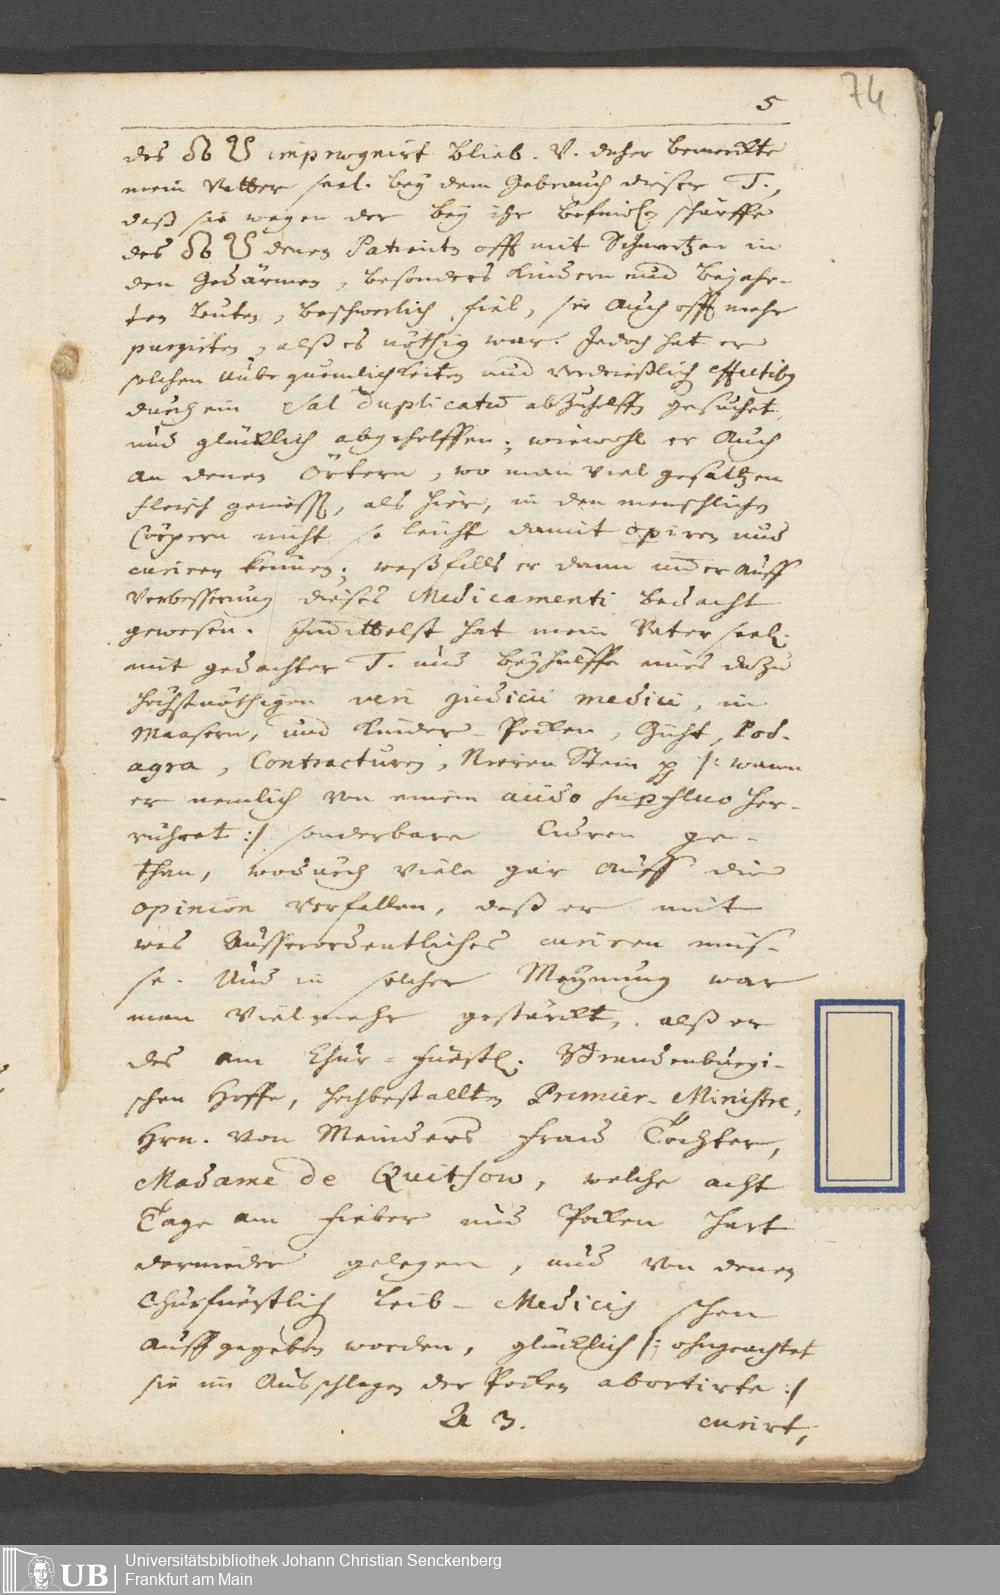 5
74
des impregnirt blieb. V. daher bemerckte
mein Vatter seel. bey dem Gebrauch dieser T.,
daß sie wegen der bey ihr befindl. schärffe
des denen Patienten offt mit Schmertzen in
den Gedärmen, besonders Kindern und bejahr-
ten Leuten, beschwerlich fiel, sie auch offt mehr
purgirten, alß es nöthig war. Jedoch hat er
solchen Unbequemlichkeiten und verdrießlich effectiby
durch ein Sal duplicatum abzuhelffen gesuchet,
und glücklich abgeholffen; wiewohl er auch
an denen Örtern, wo man viel gesaltzen
Fleisch geniesst, als hier, in den menschlichen
Cörpern nicht so leicht damit operiren und
curiren können; weßfalls er dann immer auff
Verbesserung dieses Medicamenti bedacht
gewesen. Immittelst hat mein Vater seel.
mit gedachter T. und Beyhülffe eines dazu
höchstnöthigen veri judicii medici, in
Maasern, und Kinder-Pocken, Gicht, Pod-
agra, Contracturen, Nieren Stein pp /: wann
er nemlich von einem acido superfluo her-
rühret :/ sonderbare Curen ge-
than, wodurch viele gar auff die
opinion verfallen, daß er mit
was Ausserordentliches curiren müs-
se. Und in solcher Meynung war
man vielmehr gestärckt, alß er
des am Chur-Fürstl. Brandenburgi-
schen Hoffe, hochbestallten Premier-Ministre,
Hrn. von Meinders Frau Tochter,
Madame de Quitsow, welche acht
Tage am Fieber und Pocken hart
darnieder gelegen, und von denen
Churfürstlich Leib-Medicis schon
auffgegeben worden, glücklich /: ohngeachtet
sie im Ausschlagen der Pocken abortirte :/
A 3. curirt,
UB
Universitätsbibliothek Johann Christian Senckenberg
Frankfurt am Main